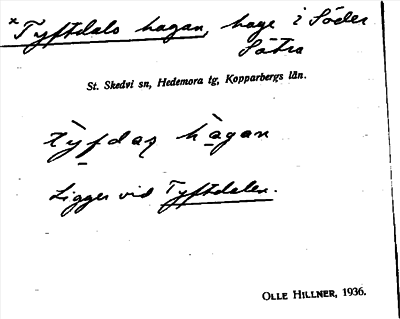 *Tyftdals hagan, hage i Söder
Sätra
St. Skedvi sn, Hedemora tg, Kopparbergs län.
tỳfdas hàgan
Ligger vid Tyftdalen.
OLLE HILLNER, 1936.